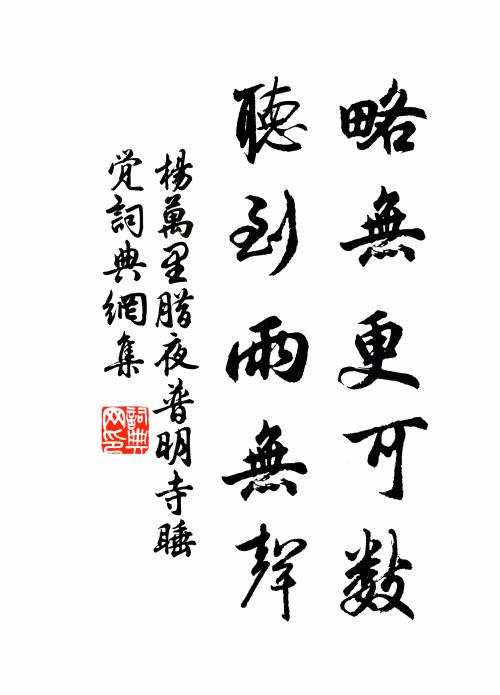 略無更可數
聽到雨無聲
楊萬里腊夜普明寺睡
觉詞典網集
詞典
网印